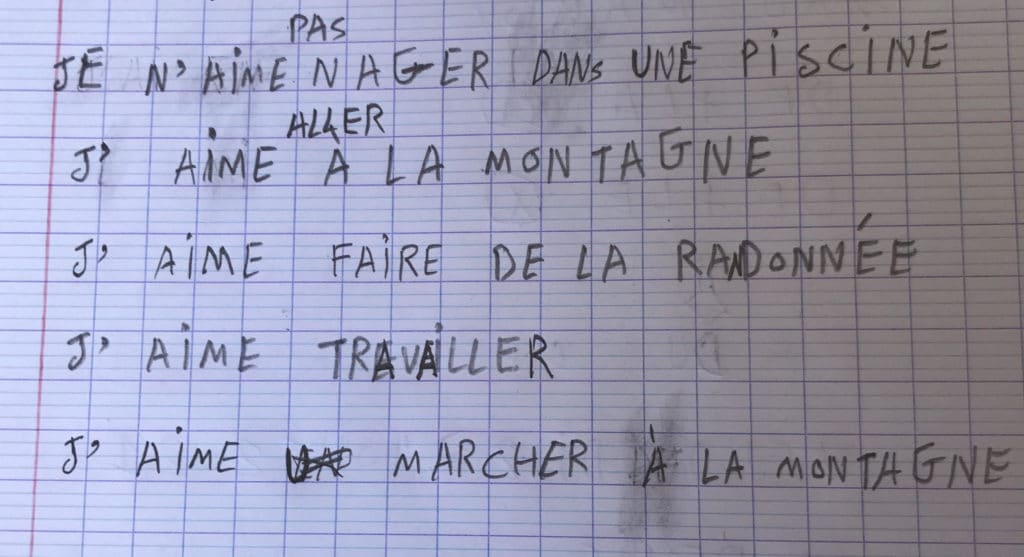 PAS
JE N'AiME NAGER DANS UNE PiSCiNE
ALLER
J' AiME À LA MONTAGNE
J' AiME FAiRE DE LA RANDONNÉE
J' AiME TRAVAiLLER
J' AiME MARCHER À LA MONTAGNE